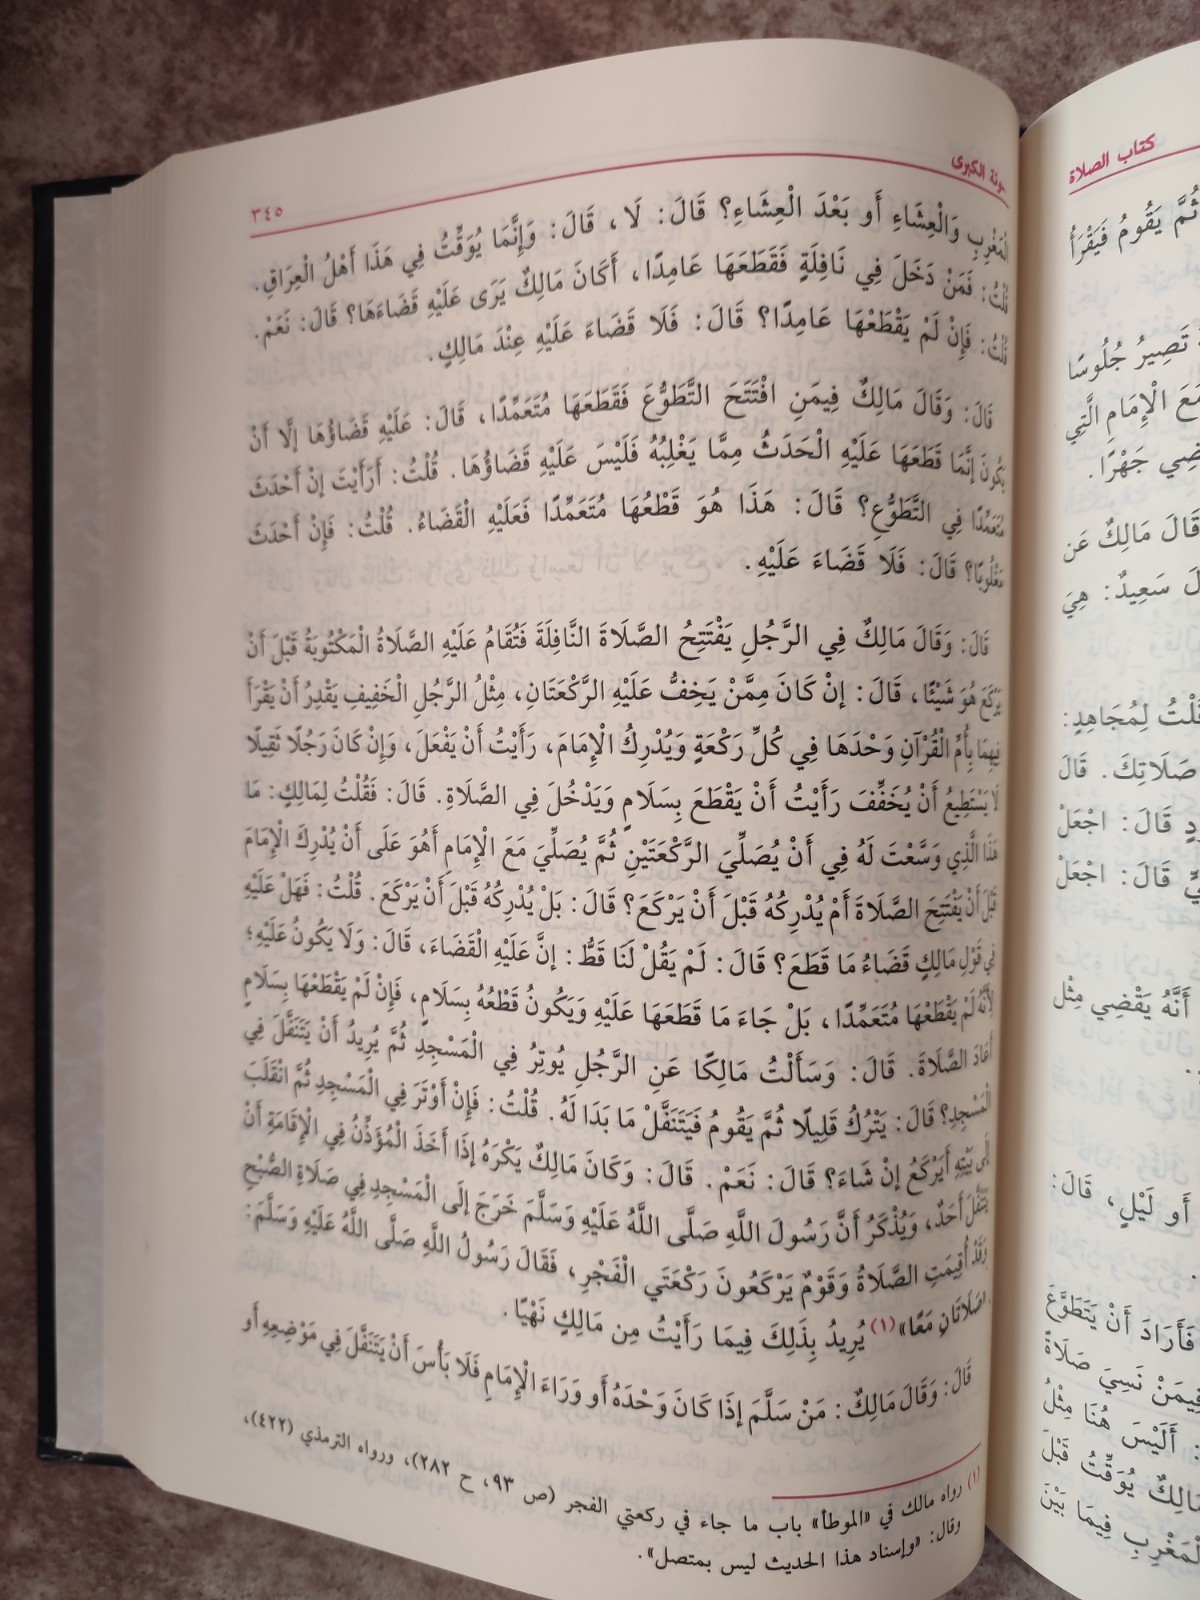 كتاب الصلاة
ثُمَّ يَقُومُ فَيَقْرَأُ
تَصِيرُ جُلُوسًا
مَعَ الْإِمَامِ الَّتِي
جَهْرًا.
قَالَ مَالِكٌ عَن
سَعِيدٌ: هِيَ
لِمُجَاهِدٍ:
صَلَاتِكَ. قَالَ
قَالَ: اجْعَلْ
قَالَ: اجْعَلْ
أَنَّهُ يَقْضِي مِثْل
أَو لَيْلٍ، قَالَ:
فَأَرَادَ أَنْ يَتَطَوَّعَ
فِيمَنْ نَسِيَ صَلَاةً
: أَلَيْسَ هُنَا مِثْلُ
مَالِكٌ يُوَقِّتُ قَبْلَ
الْمَغْرِبِ فِيمَا بَيْنَ
الكبرى
٣٤٥
الْمَغْرِبِ وَالْعِشَاءِ أَو بَعْدَ الْعِشَاءِ؟ قَالَ: لَا، قَالَ: وَإِنَّمَا يُوَقِّتُ فِي هَذَا أَهْلُ الْعِرَاقِ.
قُلْتُ: فَمَنْ دَخَلَ فِي نَافِلَةٍ فَقَطَعَهَا عَامِدًا، أَكَانَ مَالِكٌ يَرَى عَلَيْهِ قَضَاءَهَا؟ قَالَ: نَعَمْ.
قُلْتُ: فَإِنْ لَمْ يَقْطَعْهَا عَامِدًا؟ قَالَ: فَلَا قَضَاءَ عَلَيْهِ عِنْدَ مَالِكٍ.
قَالَ: وَقَالَ مَالِكٌ فِيمَنِ افْتَتَحَ التَّطَوُّعَ فَقَطَعَهَا مُتَعَمِّدًا، قَالَ: عَلَيْهِ قَضَاؤُهَا إِلَّا أَنْ
يَكُونَ إِنَّمَا قَطَعَهَا عَلَيْهِ الْحَدَثُ مِمَّا يَغْلِبُهُ فَلَيْسَ عَلَيْهِ قَضَاؤُهَا. قُلْتُ: أَرَأَيْتَ إِنْ أَحْدَثَ
مُتَعَمِّدًا فِي التَّطَوُّعِ؟ قَالَ: هَذَا هُوَ قَطْعُهَا مُتَعَمِّدًا فَعَلَيْهِ الْقَضَاءُ. قُلْتُ: فَإِنْ أَحْدَثَ
مَغْلُوبًا؟ قَالَ: فَلَا قَضَاءَ عَلَيْهِ.
قَالَ: وَقَالَ مَالِكٌ فِي الرَّجُلِ يَفْتَتِحُ الصَّلَاةَ النَّافِلَةَ فَتُقَامُ عَلَيْهِ الصَّلَاةُ الْمَكْتُوبَةُ قَبْلَ أَنْ
يَرْكَعَ هُوَ شَيْئًا، قَالَ: إِنْ كَانَ مِمَّنْ يَخِفُّ عَلَيْهِ الرَّكْعَتَانِ، مِثْلُ الرَّجُلِ الْخَفِيفِ يَقْدِرُ أَنْ يَقْرَأَ
فِيهِمَا بِأُمِّ الْقُرْآنِ وَحْدَهَا فِي كُلِّ رَكْعَةٍ وَيُدْرِكُ الْإِمَامَ، رَأَيْتُ أَنْ يَفْعَلَ، وَإِنْ كَانَ رَجُلًا ثَقِيلًا
لَا يَسْتَطِيعُ أَنْ يُخَفِّفَ رَأَيْتُ أَنْ يَقْطَعَ بِسَلَامٍ وَيَدْخُلَ فِي الصَّلَاةِ. قَالَ: فَقُلْتُ لِمَالِكٍ: مَا
هَذَا الَّذِي وَسَّعْتَ لَهُ فِي أَنْ يُصَلِّيَ الرَّكْعَتَيْنِ ثُمَّ يُصَلِّيَ مَعَ الْإِمَامِ أَهُوَ عَلَى أَنْ يُدْرِكَ الْإِمَامَ
قَبْلَ أَنْ يَفْتَتِحَ الصَّلَاةَ أَمْ يُدْرِكُهُ قَبْلَ أَنْ يَرْكَعَ؟ قَالَ: بَلْ يُدْرِكُهُ قَبْلَ أَنْ يَرْكَعَ. قُلْتُ: فَهَلْ عَلَيْهِ
فِي قَوْلِ مَالِكٍ قَضَاءُ مَا قَطَعَ؟ قَالَ: لَمْ يَقُلْ لَنَا قَطُّ: إِنَّ عَلَيْهِ الْقَضَاءَ، قَالَ: وَلَا يَكُونُ عَلَيْهِ؛
لِأَنَّهُ لَمْ يَقْطَعْهَا مُتَعَمِّدًا، بَلْ جَاءَ مَا قَطَعَهَا عَلَيْهِ وَيَكُونُ قَطْعُهُ بِسَلَامٍ، فَإِنْ لَمْ يَقْطَعْهَا بِسَلَامٍ
أَعَادَ الصَّلَاةَ. قَالَ: وَسَأَلْتُ مَالِكًا عَنِ الرَّجُلِ يُوتِرُ فِي الْمَسْجِدِ ثُمَّ يُرِيدُ أَنْ يَتَنَفَّلَ فِي
الْمَسْجِدِ؟ قَالَ: يَتْرُكُ قَلِيلًا ثُمَّ يَقُومُ فَيَتَنَفَّلْ مَا بَدَا لَهُ. قُلْتُ: فَإِنْ أَوْتَرَ فِي الْمَسْجِدِ ثُمَّ انْقَلَبَ
إِلَى بَيْتِهِ أَيَرْكَعُ إِنْ شَاءَ؟ قَالَ: نَعَمْ. قَالَ: وَكَانَ مَالِكٌ يَكْرَهُ إِذَا أَخَذَ الْمُؤَذِّنُ فِي الْإِقَامَةِ أَنْ
يَتَنَفَّلَ أَحَدٌ، وَيُذْكَرُ أَنَّ رَسُولَ اللَّهِ صَلَّى اللَّهُ عَلَيْهِ وَسَلَّمَ خَرَجَ إِلَى الْمَسْجِدِ فِي صَلَاةِ الصُّبْحِ
وَقَدْ أُقِيمَتِ الصَّلَاةُ وَقَوْمٌ يَرْكَعُونَ رَكْعَتَي الْفَجْرِ، فَقَالَ رَسُولُ اللَّهِ صَلَّى اللَّهُ عَلَيْهِ وَسَلَّمَ:
أَصَلَاتَانِ مَعًا»(١) يُرِيدُ بِذَلِكَ فِيمَا رَأَيْتُ مِن مَالِكٍ نَهْيًا.
قَالَ: وَقَالَ مَالِكٌ: مَنْ سَلَّمَ إِذَا كَانَ وَحْدَهُ أَو وَرَاءَ الْإِمَامِ فَلَا بَأْسَ أَنْ يَتَنَفَّلَ فِي مَوْضِعِهِ أَو
(١) رواه مالك في «الموطأ» باب ما جاء في ركعتي الفجر (ص ٩٣، ح ٢٨٢)، ورواه الترمذي (٤٢٢)،
وقال: «وإسناد هذا الحديث ليس بمتصل».